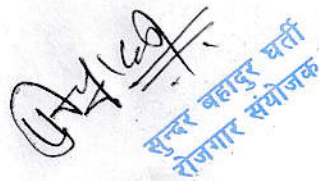 सुन्दर बहादुर घर्ती
रोजगार संयोजक